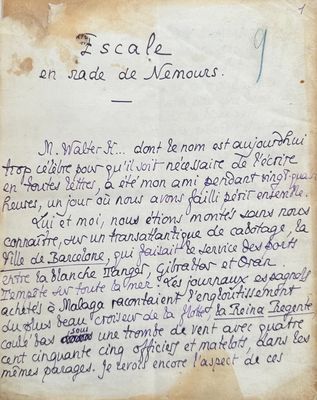 1
9
Escale
en rade de Nemours.
M. Walter K... dont le nom est aujourd'hui
trop célèbre pour qu'il soit nécessaire de l'écrire
en toutes lettres, a été mon ami pendant vingt-quatre
heures, un jour où nous avons failli périr ensemble.
Lui et moi, nous étions montés sans nous
connaître, sur un transatlantique de cabotage, la
Ville de Barcelone, qui faisait le service des ports
entre la blanche Tanger, Gibraltar et Oran.
Tempête sur toute la mer. Les journaux espagnols
achetés à Malaga racontaient l'engloutissement
du plus beau croiseur de la flotte, la Reina Regente
coulé bas sous une trombe de vent avec quatre
cent cinquante cinq officiers et matelots, dans les
mêmes parages. Je revois encore l'aspect de ces